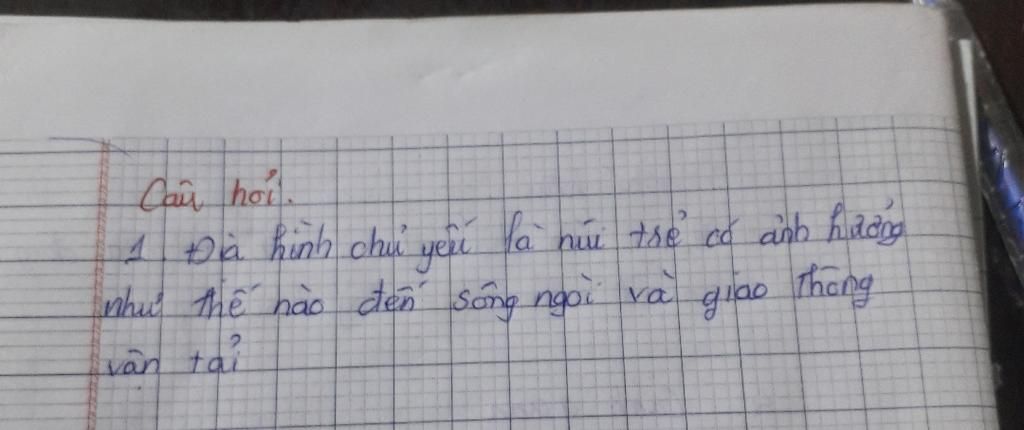 Câu hỏi.
1 Địa hình chủ yếu là núi trẻ có ảnh hưởng
như thế nào đến sông ngòi và giao thông
vận tải